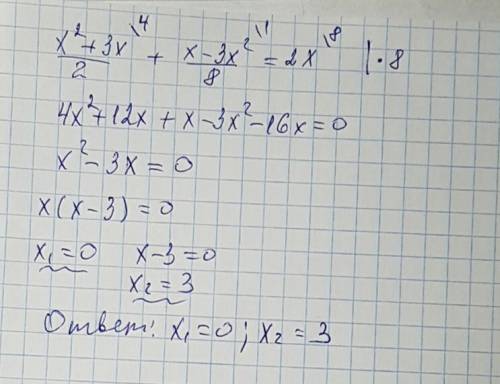 (x² + 3x)/2 \4 + (x - 3x²)/8 \1 = 2x \8 | · 8
4x² + 12x + x - 3x² - 16x = 0
x² - 3x = 0
x(x - 3) = 0
x₁ = 0 x - 3 = 0
x₂ = 3
Ответ: x₁ = 0; x₂ = 3